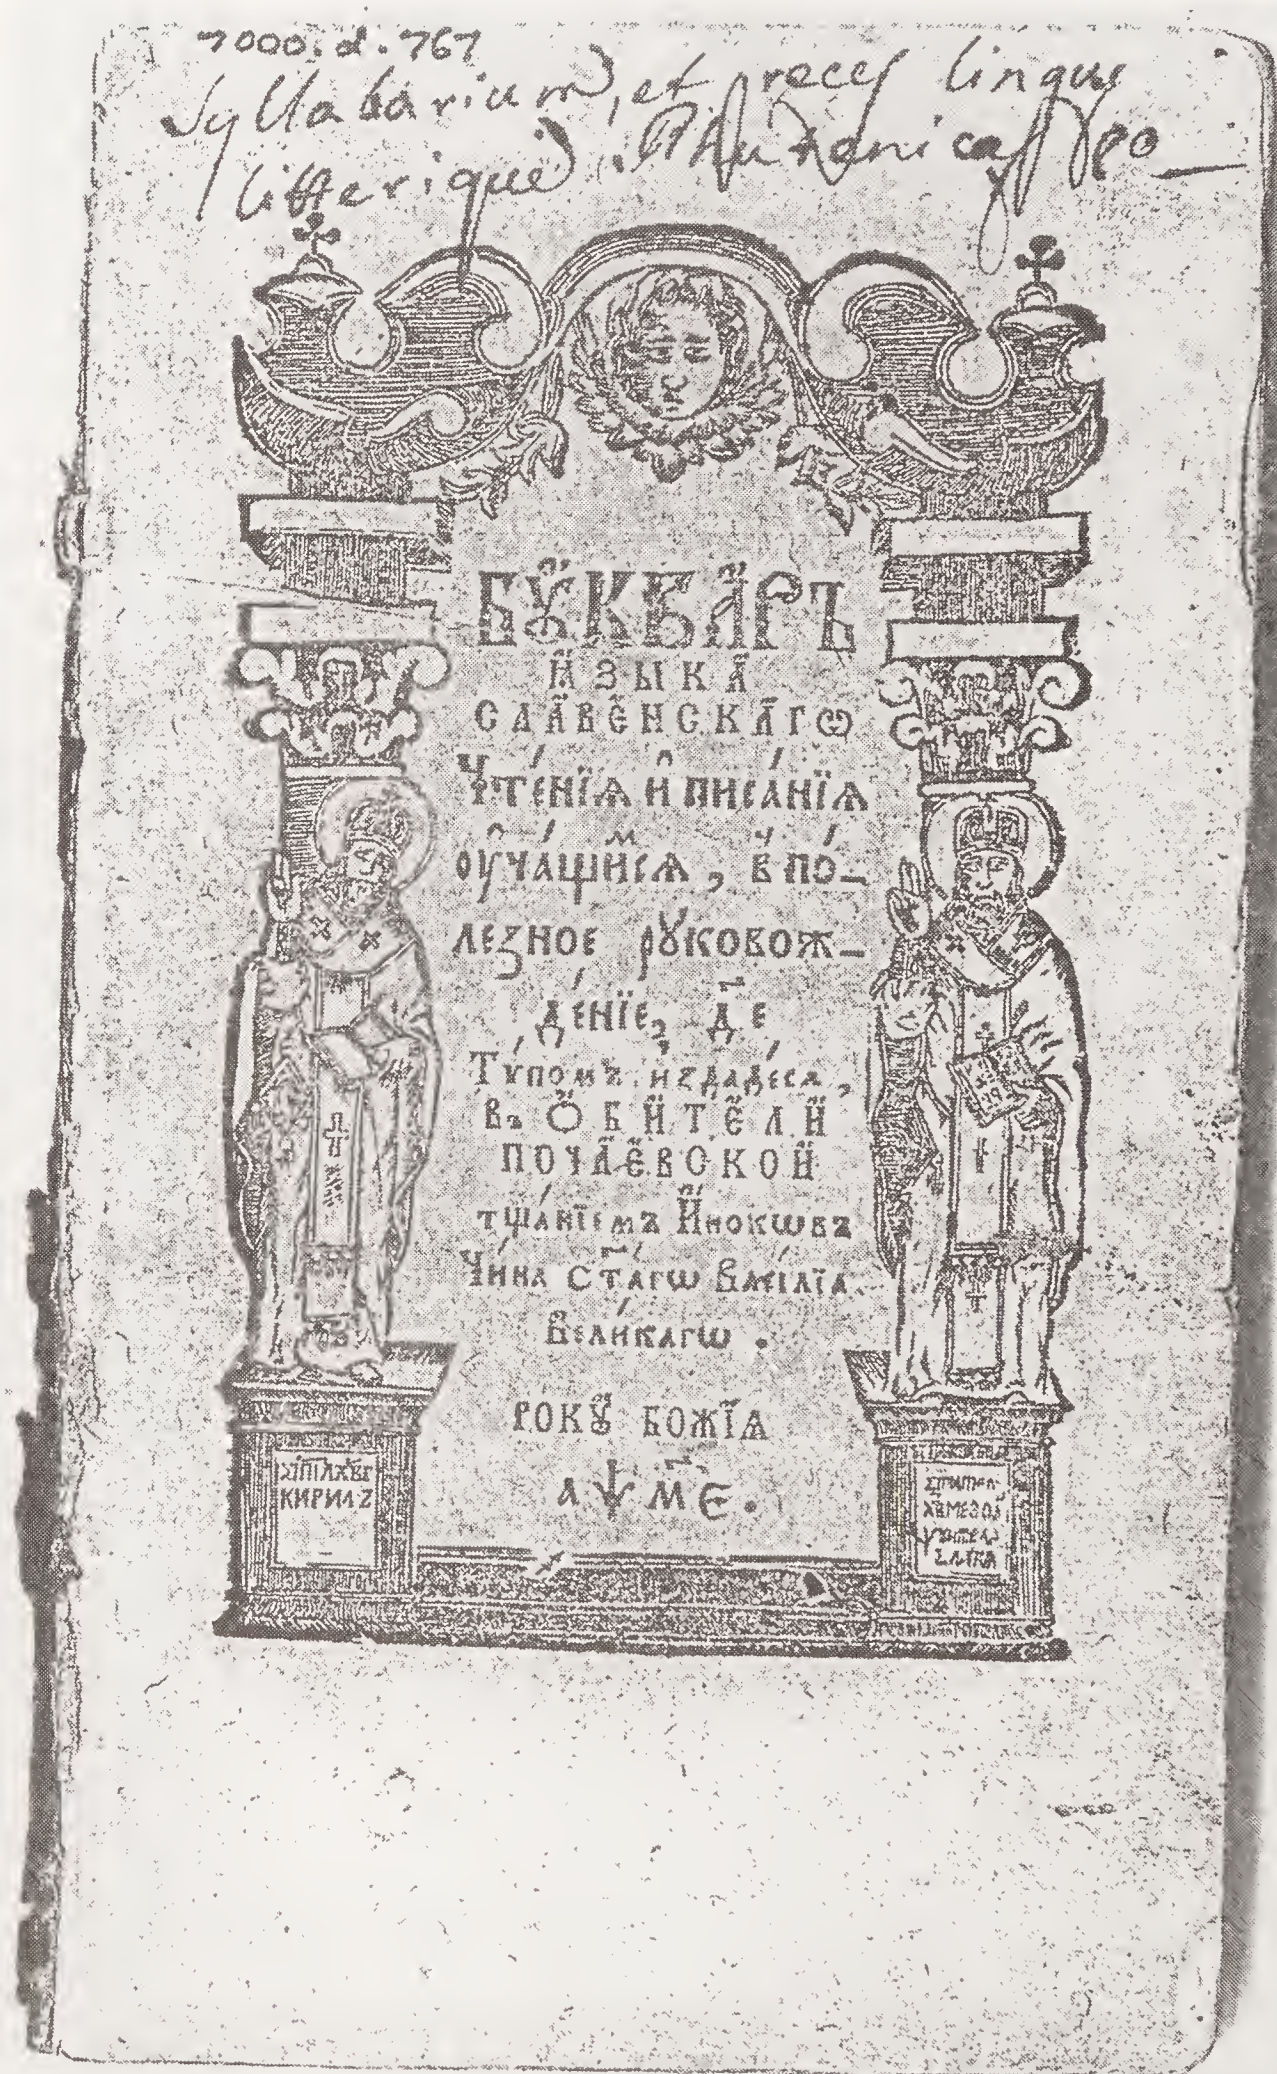 7000.d.767
Syllabarium, et preces lingue
litterique Rhutenicae
БꙊКВАРЪ
ꙖЗЫКА
СЛАВЕНСКАГѠ
Чте́нїѧ и҆ писа́нїѧ
оу҆ча́щиⷨсѧ, въ по-
лезное рꙋковож-
де́нїе, д҃е
Тѵ́помъ и҆здаде́сѧ,
въ Ѻ҆БИТЕЛИ
ПОЧАЕВСКОЙ
тща́нїемъ И҆нокѡвъ
Чи́на Ст҃а́гѡ Васі́лїа
Вели́кагѡ.
РОКꙊ БОЖЇѦ
аѱм҃є.
КИРИЛЪ